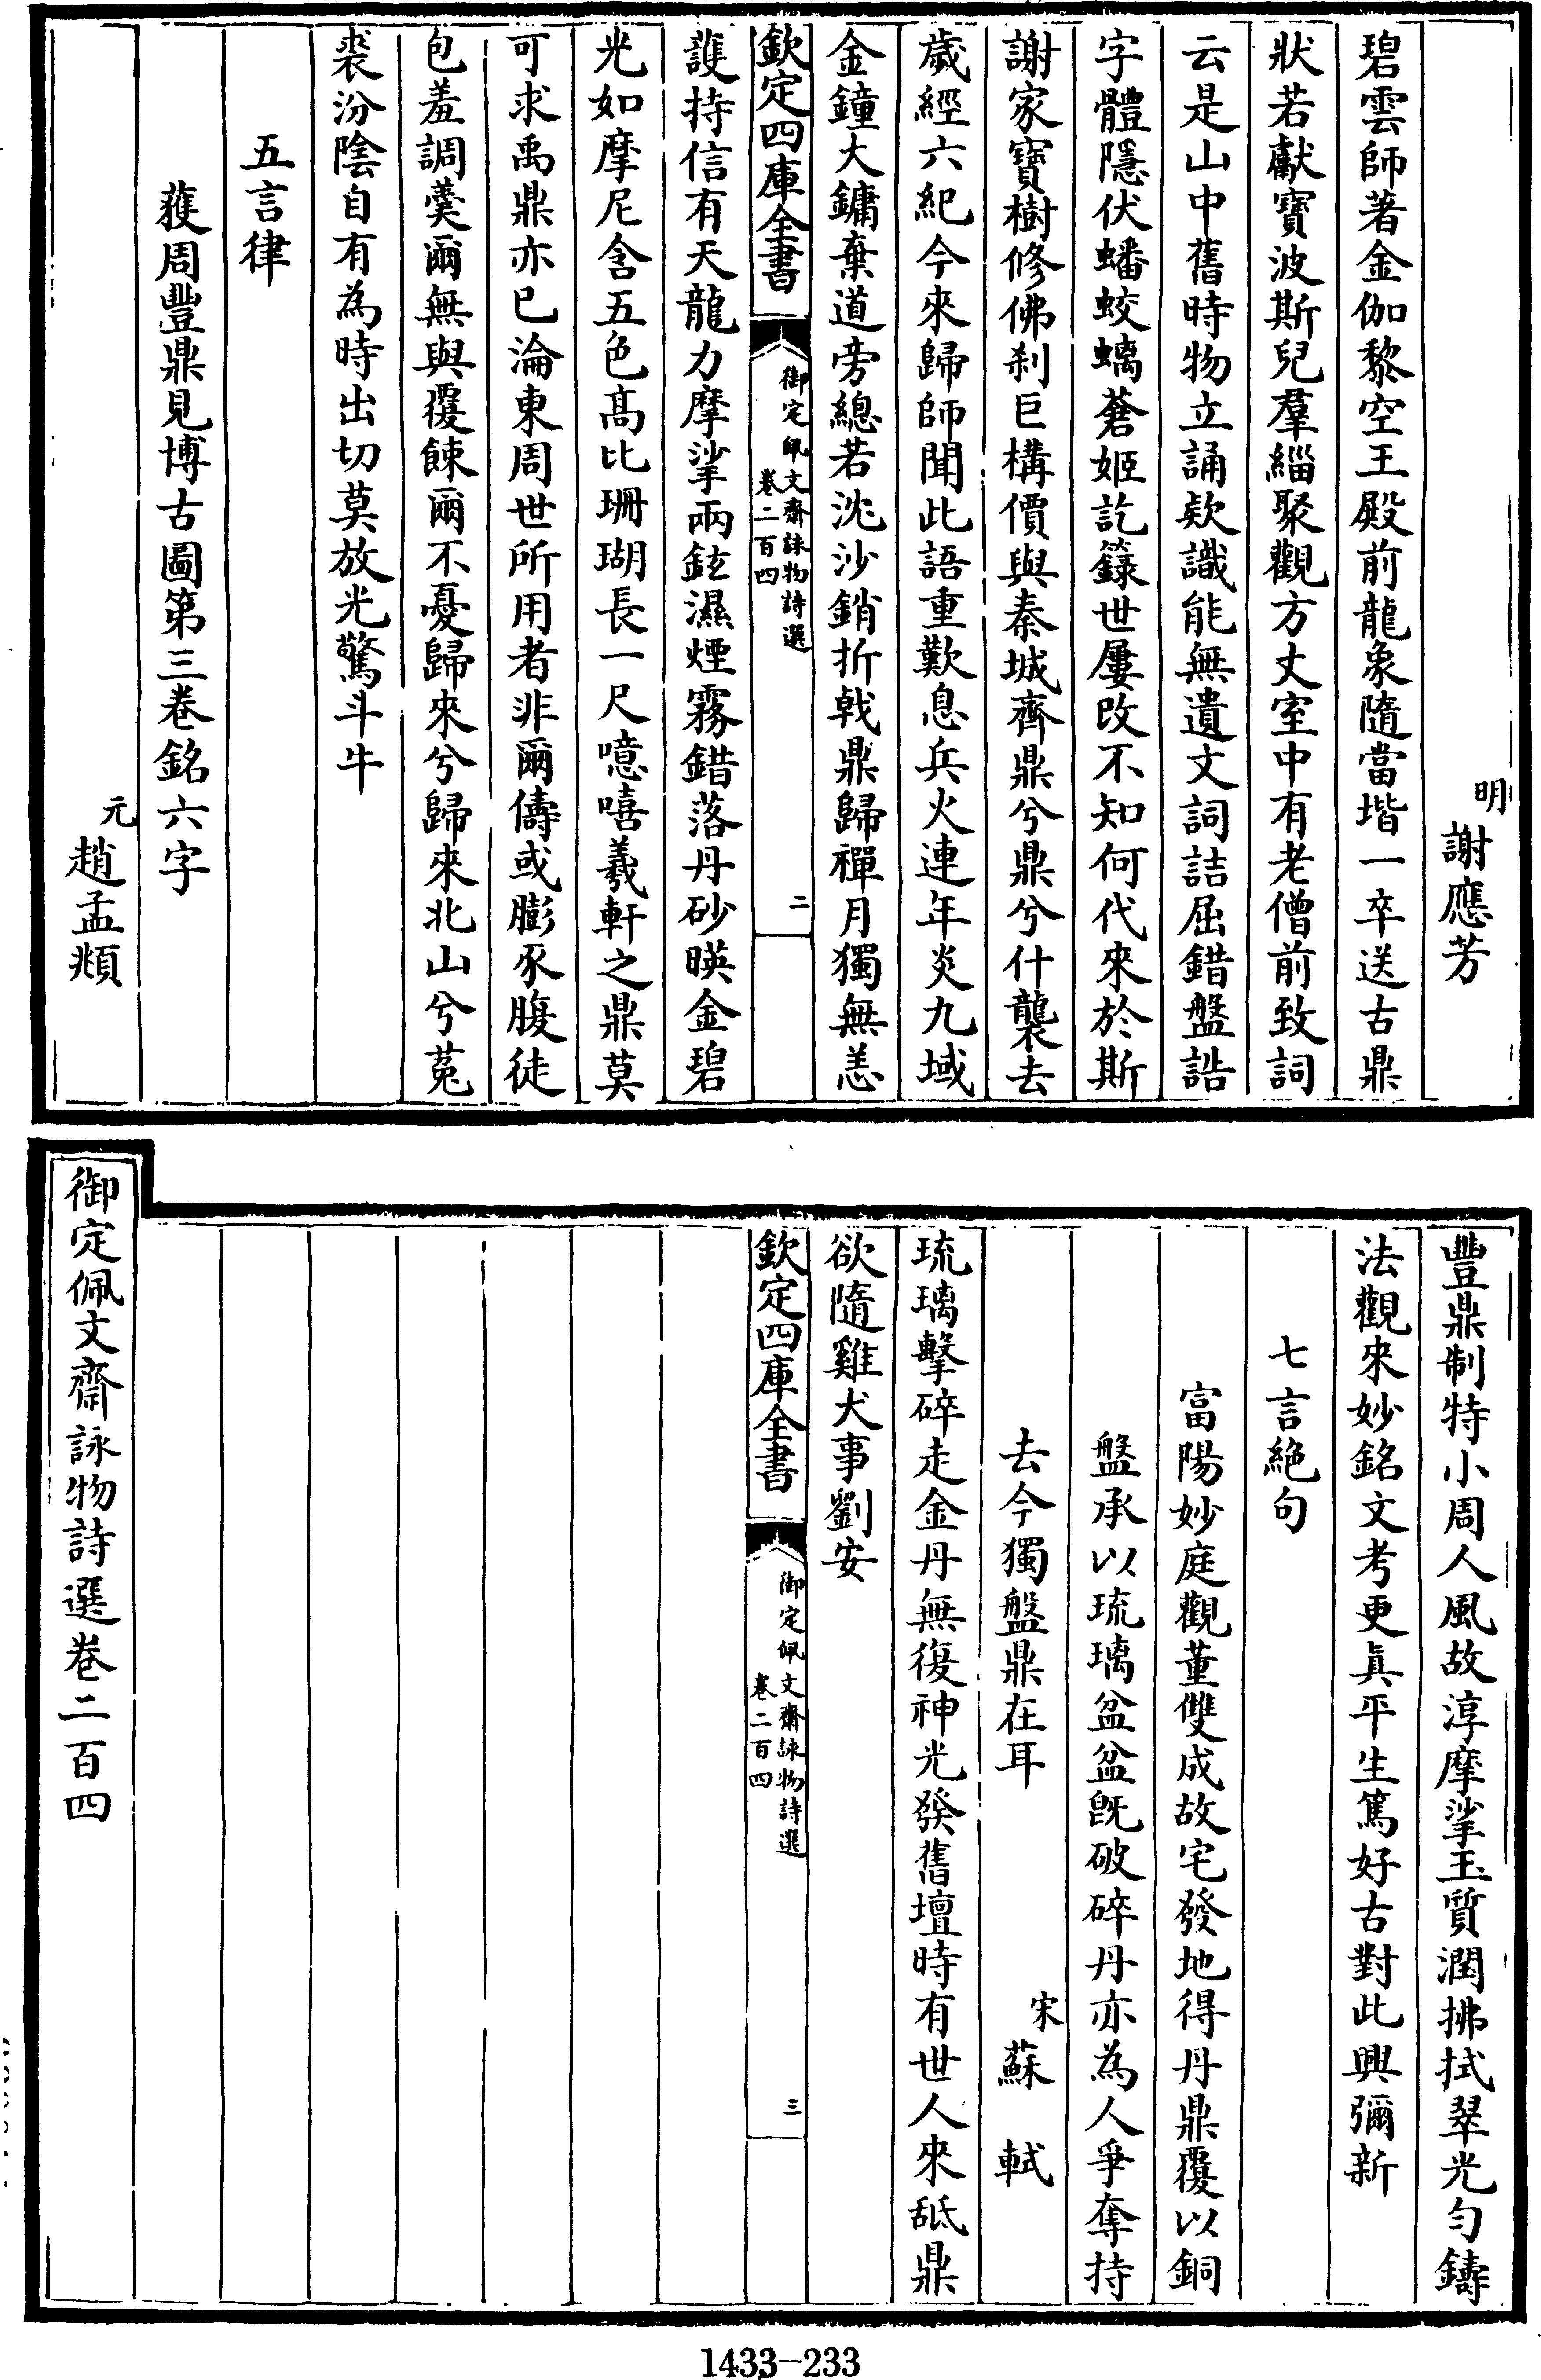 明 謝應芳
碧雲師著金伽黎空王殿前龍象隨當堦一卒送古鼎
狀若獻寶波斯兒羣緇聚觀方丈室中有老僧前致詞
云是山中舊時物立誦欵識能無遺文詞詰屈錯盤誥
字體隱伏蟠蛟螭蒼姬訖籙世屢改不知何代來於斯
謝家寶樹修佛刹巨構價與秦城齊鼎兮鼎兮什襲去
歲經六紀今來歸師聞此語重歎息兵火連年炎九域
金鐘大鏞棄道旁總若沈沙銷折戟鼎歸禪月獨無恙
欽定四庫全書
御定佩文齋詠物詩選
卷二百四
二
護持信有天龍力摩挲兩鉉濕煙霧錯落丹砂暎金碧
光如摩尼含五色髙比珊瑚長一尺噫嘻羲軒之鼎莫
可求禹鼎亦已淪東周世所用者非爾儔或膨豕腹徒
包羞調羹爾無與覆餗爾不憂歸來兮歸來北山兮菟
裘汾陰自有為時出切莫放光驚斗牛
五言律
蒦周豐鼎見博古圖第三卷銘六字
元 趙孟頫
豐鼎制特小周人風故淳摩挲玉質潤拂拭翠光勻鑄
法觀來妙銘文考更真平生篤好古對此興彌新
七言絶句
富陽妙庭觀董雙成故宅發地得丹鼎覆以銅
盤承以琉璃盆盆既破碎丹亦為人爭奪持
去今獨盤鼎在耳
宋 蘇軾
琉璃擊碎走金丹無復神光發舊壇時有世人來舐鼎
欲隨雞犬事劉安
欽定四庫全書
御定佩文齋詠物詩選
卷二百四
三
御定佩文齋詠物詩選卷二百四
1433-233